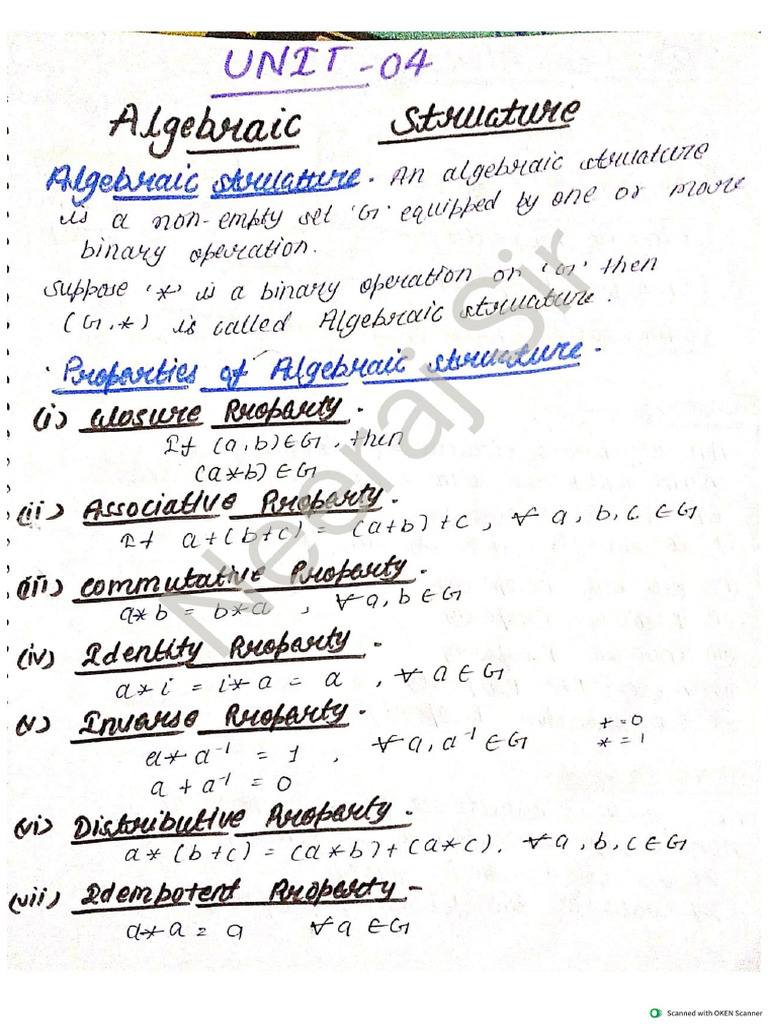 UNIT-04
Algebraic Structure
Algebraic structure. An algebraic structure
is a non-empty set 'G' equipped by one or more
binary operation.
suppose '*' is a binary operation on 'G' then
(G,*) is called Algebraic structure.
Properties of Algebraic structure.
(i) Closure Property.
If (a,b)∈G, then
(a*b)∈G
(ii) Associative Property.
If a+(b+c) = (a+b)+c, ∀ a, b, c ∈G
(iii) Commutative Property.
a*b = b*a , ∀ a, b ∈ G
(iv) Identity Property.
a*i = i*a = a , ∀ a ∈ G
(v) Inverse Property.
+ = 0
* = 1
a* a⁻¹ = 1 , ∀ a, a⁻¹ ∈ G
a + a⁻¹ = 0
(vi) Distributive Property.
a*(b+c) = (a*b)+(a*c). ∀ a, b, c∈G
(vii) Idempotent Property-
a*a = a ∀ a ∈G
Neeraj Sir
Scanned with OKEN Scanner